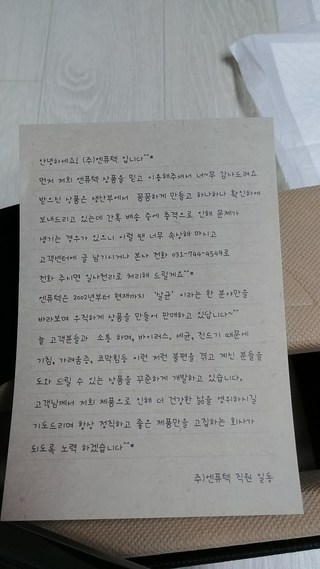 안녕하세요! (주)엔퓨텍 입니다^^*
먼저 저희 엔퓨텍 상품을 믿고 이용해주셔서 너~무 감사드려요
받으신 상품은 생산부에서 꼼꼼하게 만들고 하나하나 확인하여
보내드리고 있는데 간혹 배송 중에 충격으로 인해 문제가
생기는 경우가 있으니 이럴 땐 너무 속상해 마시고
고객센터에 글 남기시거나 본사 전화 031-744-4549로
전화 주시면 일사천리로 처리해 드릴게요^^*
엔퓨텍은 2002년부터 현재까지 '살균' 이라는 한 분야만을
바라보며 우직하게 상품을 만들어 판매하고 있답니다~^^
늘 고객분들과 소통 하며, 바이러스, 세균, 진드기 때문에
기침, 가려움증, 코막힘등 이런 저런 불편을 겪고 계신 분들을
도와 드릴 수 있는 상품을 꾸준하게 개발하고 있습니다.
고객님께서 저희 제품으로 인해 더 건강한 삶을 영위하시길
기도드리며 항상 정직하고 좋은 제품만을 고집하는 회사가
되도록 노력 하겠습니다^^*
주)엔퓨텍 직원 일동